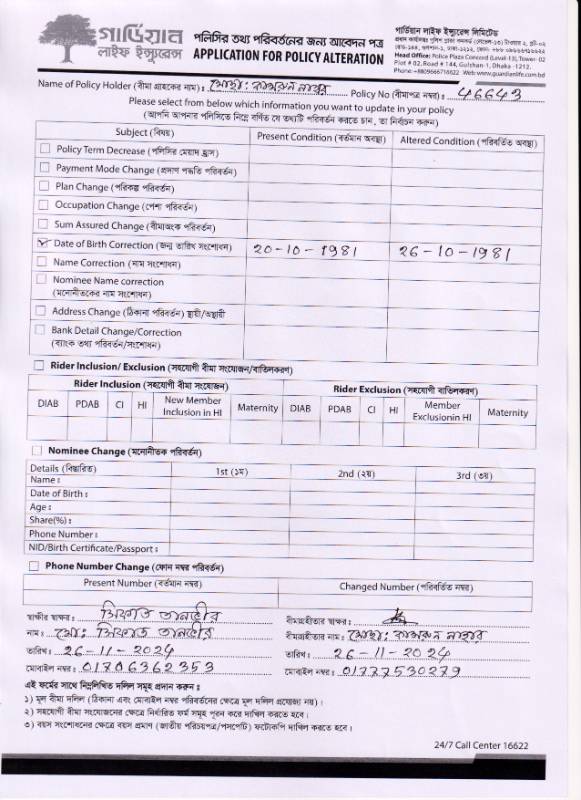 গার্ডিয়ান
লাইফ ইন্স্যুরেন্স
পলিসির তথ্য পরিবর্তনের জন্য আবেদন পত্র
APPLICATION FOR POLICY ALTERATION
গার্ডিয়ান লাইফ ইন্স্যুরেন্স লিমিটেড
প্রধান কার্যালয়: পুলিশ প্লাজা কনকর্ড (লেভেল-১৩) টাওয়ার ২, প্লট-০২
রোড-১৪৪, গুলশান-১, ঢাকা-১২১২, ফোন: +৮৮ ০৯৬৬৬৭১৬৬২২
Head Office: Police Plaza Concord (Laval-13), Tower- 02
Plot # 02, Road # 144, Gulshan-1, Dhaka -1212.
Phone: +8809666716622 Web: www.guardianlife.com.bd
Name of Policy Holder (বীমা গ্রাহকের নাম) : মোছা: কামরুন নাহার Policy No (বীমাপত্র নম্বর) : 46643
Please select from below which information you want to update in your policy
(আপনি আপনার পলিসিতে নিম্নে বর্ণিত যে তথ্যটি পরিবর্তন করতে চান, তা নির্বাচন করুন)
Subject (বিষয়) Present Condition (বর্তমান অবস্থা) Altered Condition (পরিবর্তিত অবস্থা)
Policy Term Decrease (পলিসির মেয়াদ হ্রাস)
Payment Mode Change (প্রদান পদ্ধতি পরিবর্তন)
Plan Change (পরিকল্প পরিবর্তন)
Occupation Change (পেশা পরিবর্তন)
Sum Assured Change (বীমাঅংক পরিবর্তন)
Date of Birth Correction (জন্ম তারিখ সংশোধন) 20-10-1981 26-10-1981
Name Correction (নাম সংশোধন)
Nominee Name correction
(মনোনীতকের নাম সংশোধন)
Address Change (ঠিকানা পরিবর্তন) স্থায়ী/অস্থায়ী
Bank Detail Change/Correction
(ব্যাংক তথ্য পরিবর্তন/সংশোধন)
Rider Inclusion/ Exclusion (সহযোগী বীমা সংযোজন/বাতিলকরণ)
Rider Inclusion (সহযোগী বীমা সংযোজন) Rider Exclusion (সহযোগী বাতিলকরণ)
DIAB PDAB CI HI New Member Inclusion in HI Maternity DIAB PDAB CI HI Member Exclusionin HI Maternity
Nominee Change (মনোনীতক পরিবর্তন)
Details (বিস্তারিত) 1st (১ম) 2nd (২য়) 3rd (৩য়)
Name :
Date of Birth :
Age :
Share(%) :
Phone Number :
NID/Birth Certificate/Passport :
Phone Number Change (ফোন নম্বর পরিবর্তন)
Present Number (বর্তমান নম্বর) Changed Number (পরিবর্তিত নম্বর)
স্বাক্ষীর স্বাক্ষর : সিফাত তানভীর বীমাগ্রহীতার স্বাক্ষর :
নাম : মো: সিফাত তানভীর বীমাগ্রহীতার নাম : মোছা: কামরুন নাহার
তারিখ : 26-11-2024 তারিখ : 26-11-2024
মোবাইল নম্বর : 01706362353 মোবাইল নম্বর : 01777530279
এই ফর্মের সাথে নিম্নলিখিত দলিল সমূহ প্রদান করুন :
১) মূল বীমা দলিল (ঠিকানা এবং মোবাইল নম্বর পরিবর্তনের ক্ষেত্রে মূল দলিল প্রযোজ্য নয়)।
২) সহযোগী বীমা সংযোজনের ক্ষেত্রে নির্ধারিত ফর্ম সমূহ পূরন করে দাখিল করতে হবে।
৩) বয়স সংশোধনের ক্ষেত্রে বয়স প্রমাণ (জাতীয় পরিচয়পত্র/পাসপোর্ট) ফটোকপি দাখিল করতে হবে।
24/7 Call Center 16622